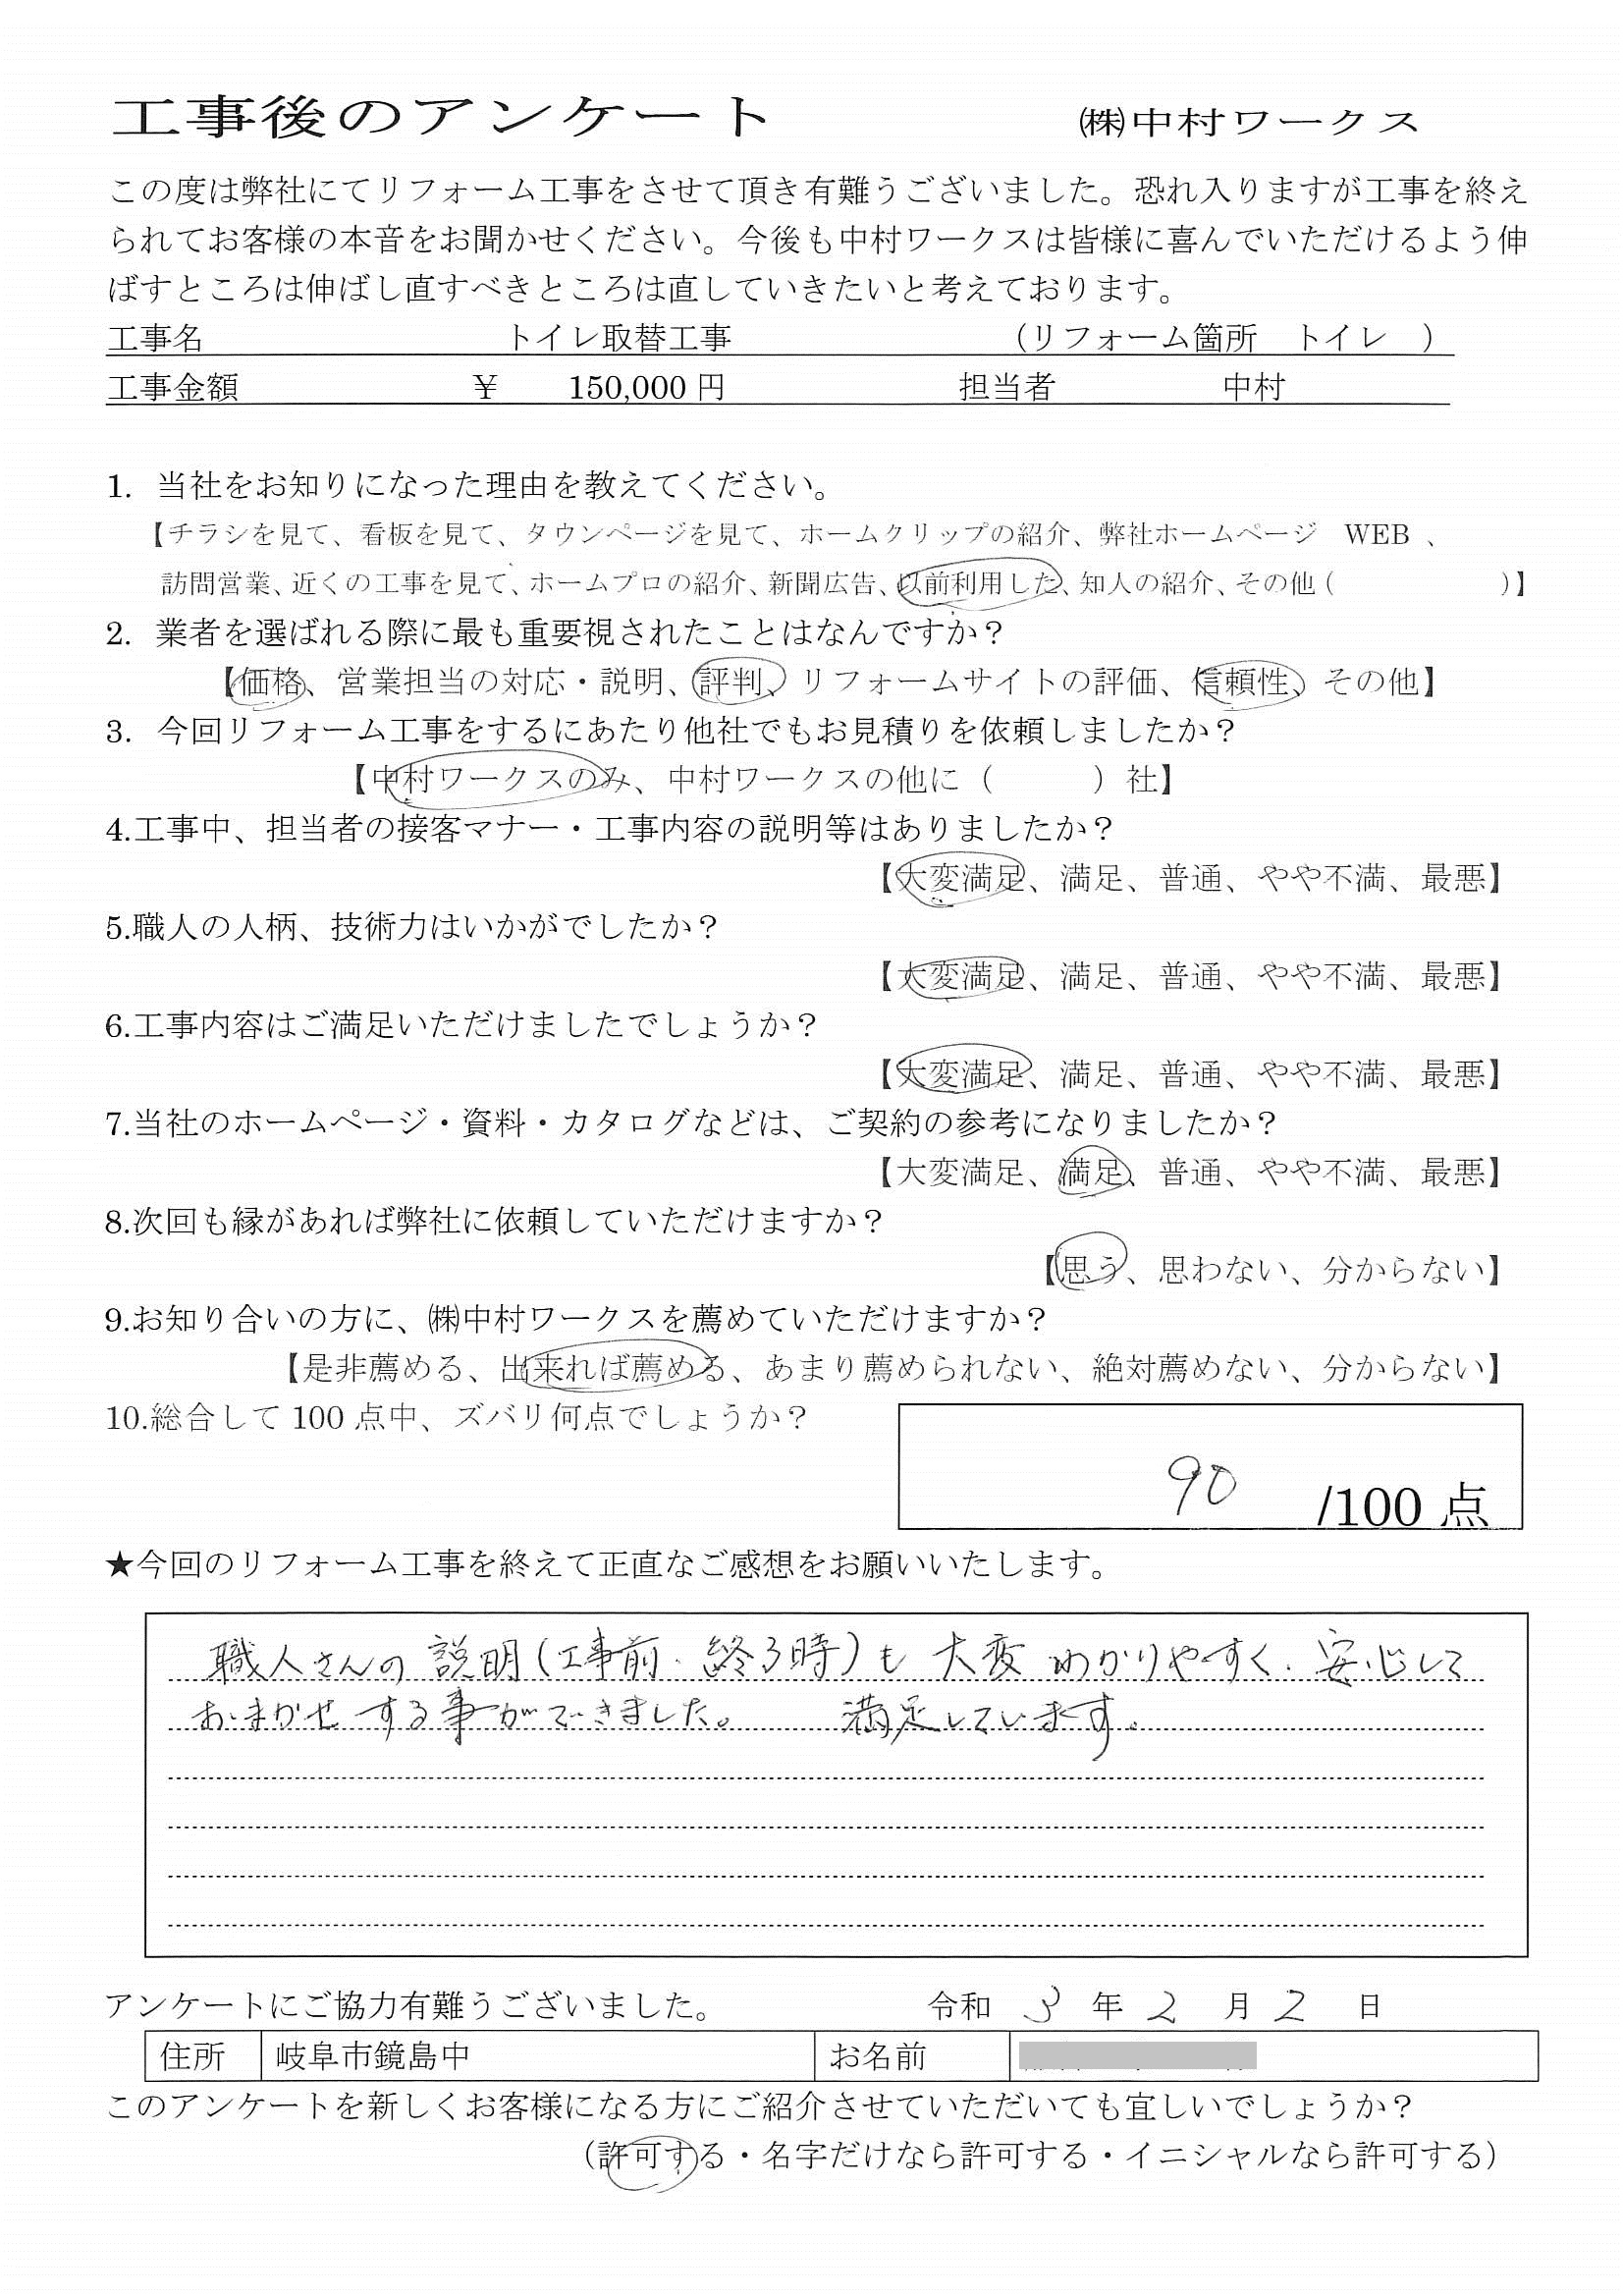 工事後のアンケート ㈱中村ワークス
この度は弊社にてリフォーム工事をさせて頂き有難うございました。恐れ入りますが工事を終え
られてお客様の本音をお聞かせください。今後も中村ワークスは皆様に喜んでいただけるよう伸
ばすところは伸ばし直すべきところは直していきたいと考えております。
工事名 トイレ取替工事 （リフォーム箇所 トイレ ）
工事金額 ￥ 150,000 円 担当者 中村
1. 当社をお知りになった理由を教えてください。
【チラシを見て、看板を見て、タウンページを見て、ホームクリップの紹介、弊社ホームページ WEB 、
訪問営業、近くの工事を見て、ホームプロの紹介、新聞広告、以前利用した、知人の紹介、その他（ ）】
2. 業者を選ばれる際に最も重要視されたことはなんですか？
【価格、営業担当の対応・説明、評判、リフォームサイトの評価、信頼性、その他】
3. 今回リフォーム工事をするにあたり他社でもお見積りを依頼しましたか？
【中村ワークスのみ、中村ワークスの他に（ ）社】
4.工事中、担当者の接客マナー・工事内容の説明等はありましたか？
【大変満足、満足、普通、やや不満、最悪】
5.職人の人柄、技術力はいかがでしたか？
【大変満足、満足、普通、やや不満、最悪】
6.工事内容はご満足いただけましたでしょうか？
【大変満足、満足、普通、やや不満、最悪】
7.当社のホームページ・資料・カタログなどは、ご契約の参考になりましたか？
【大変満足、満足、普通、やや不満、最悪】
8.次回も縁があれば弊社に依頼していただけますか？
【思う、思わない、分からない】
9.お知り合いの方に、㈱中村ワークスを薦めていただけますか？
【是非薦める、出来れば薦める、あまり薦められない、絶対薦めない、分からない】
10.総合して 100 点中、ズバリ何点でしょうか？
90 /100 点
★今回のリフォーム工事を終えて正直なご感想をお願いいたします。
職人さんの 説明(工事前、終る時)も 大変 わかりやすく、安心して
おまかせ する事ができました。 満足しています。
アンケートにご協力有難うございました。 令和 3 年 2 月 2 日
住所 岐阜市鏡島中 お名前
このアンケートを新しくお客様になる方にご紹介させていただいても宜しいでしょうか？
（許可する・名字だけなら許可する・イニシャルなら許可する）